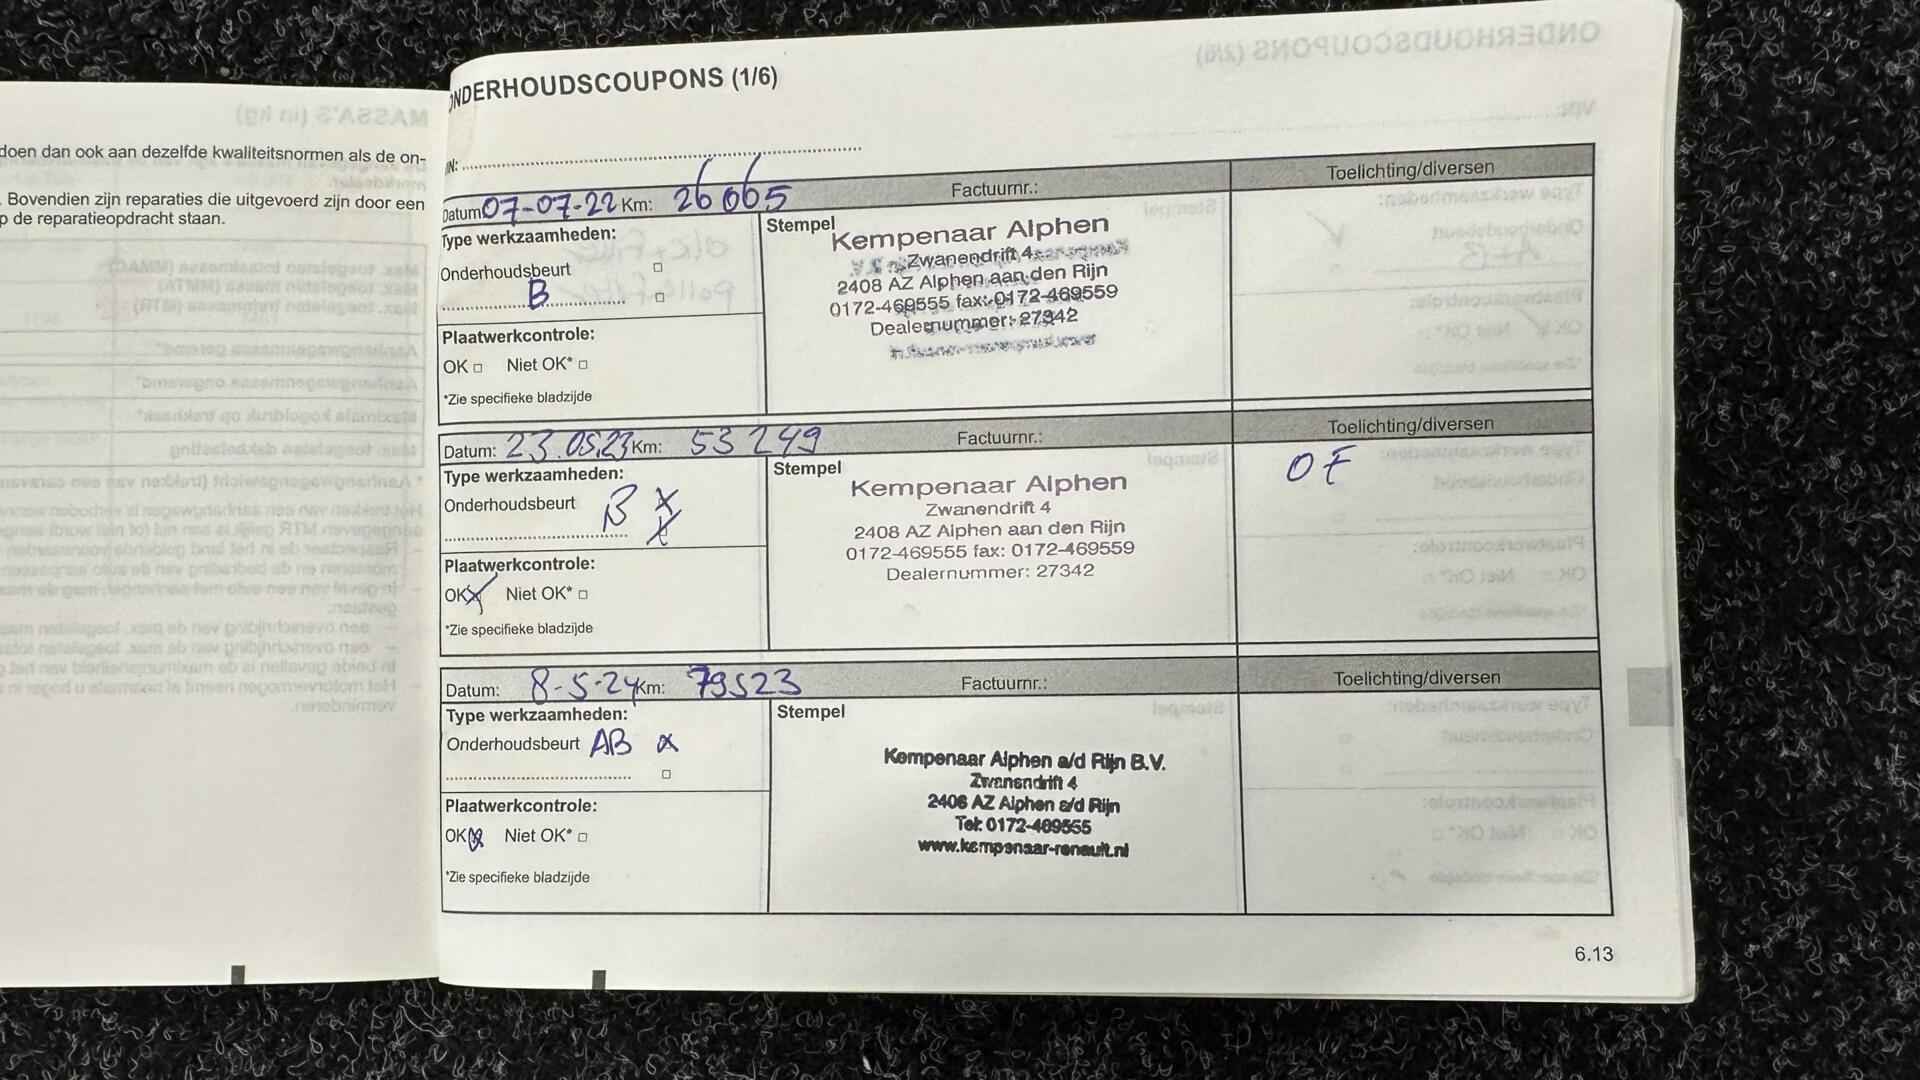 doen dan ook aan dezelfde kwaliteitsnormen als de on-
. Bovendien zijn reparaties die uitgevoerd zijn door een
p de reparatieopdracht staan.
ONDERHOUDSCOUPONS (1/6)
IN:
Datum: 07-07-22 Km: 26665 Factuurnr.: Toelichting/diversen
Type werkzaamheden:
Onderhoudsbeurt
B
Plaatwerkcontrole:
OK Niet OK*
*Zie specifieke bladzijde
Stempel
Kempenaar Alphen
Zwanendrift 4
2408 AZ Alphen aan den Rijn
0172-469555 fax: 0172-469559
Dealernummer: 27342
Datum: 23.05.23 Km: 53249 Factuurnr.: Toelichting/diversen
Type werkzaamheden:
Onderhoudsbeurt B X
X
Plaatwerkcontrole:
OK X Niet OK*
*Zie specifieke bladzijde
Stempel
Kempenaar Alphen
Zwanendrift 4
2408 AZ Alphen aan den Rijn
0172-469555 fax: 0172-469559
Dealernummer: 27342
OF
Datum: 8-5-24 Km: 79523 Factuurnr.: Toelichting/diversen
Type werkzaamheden:
Onderhoudsbeurt AB X
Plaatwerkcontrole:
OK X Niet OK*
*Zie specifieke bladzijde
Stempel
Kempenaar Alphen a/d Rijn B.V.
Zwanendrift 4
2408 AZ Alphen a/d Rijn
Tel: 0172-469555
www.kempenaar-renault.nl
6.13